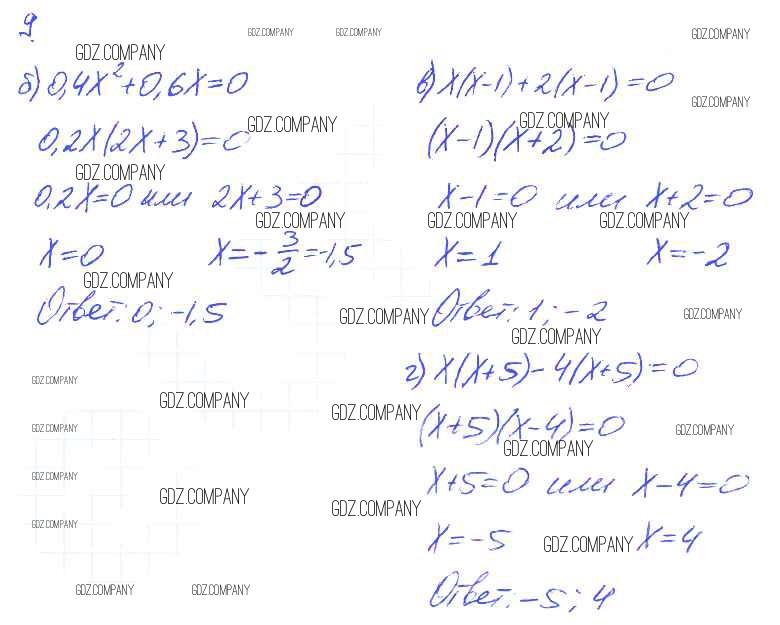 9
GDZ.COMPANY GDZ.COMPANY GDZ.COMPANY
GDZ.COMPANY
б) 0,4x² + 0,6x = 0
GDZ.COMPANY
0,2x(2x + 3) = 0
GDZ.COMPANY
0,2x = 0 или 2x + 3 = 0
GDZ.COMPANY
x = 0 x = -3/2 = -1,5
GDZ.COMPANY
Ответ: 0; -1,5
в) x(x-1) + 2(x-1) = 0
GDZ.COMPANY
GDZ.COMPANY
(x-1)(x+2) = 0
x-1 = 0 или x+2 = 0
GDZ.COMPANY GDZ.COMPANY
x = 1 x = -2
GDZ.COMPANY Ответ: 1; -2 GDZ.COMPANY
GDZ.COMPANY
г) x(x+5) - 4(x+5) = 0
GDZ.COMPANY
GDZ.COMPANY GDZ.COMPANY
(x+5)(x-4) = 0
GDZ.COMPANY GDZ.COMPANY
GDZ.COMPANY
x+5 = 0 или x-4 = 0
GDZ.COMPANY
GDZ.COMPANY GDZ.COMPANY
GDZ.COMPANY
x = -5 GDZ.COMPANY x = 4
Ответ: -5; 4
GDZ.COMPANY GDZ.COMPANY